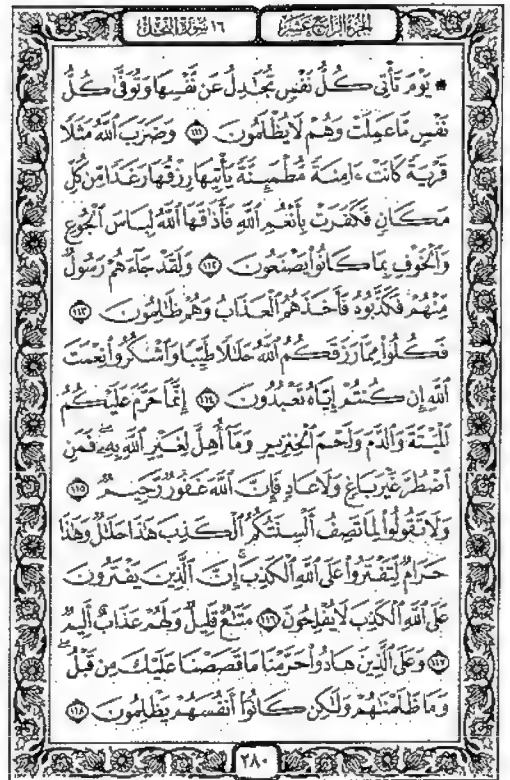 الجزء الرابع عشر ١٦ سورة النحل
۞ يَوْمَ تَأْتِى كُلُّ نَفْسٍ تُجَٰدِلُ عَن نَّفْسِهَا وَتُوَفَّىٰ كُلُّ
نَفْسٍ مَّا عَمِلَتْ وَهُمْ لَا يُظْلَمُونَ ١١١ وَضَرَبَ ٱللَّهُ مَثَلًا
قَرْيَةً كَانَتْ ءَامِنَةً مُّطْمَئِنَّةً يَأْتِيهَا رِزْقُهَا رَغَدًا مِّن كُلِّ
مَكَانٍ فَكَفَرَتْ بِأَنْعُمِ ٱللَّهِ فَأَذَٰقَهَا ٱللَّهُ لِبَاسَ ٱلْجُوعِ
وَٱلْخَوْفِ بِمَا كَانُوا۟ يَصْنَعُونَ ١١٢ وَلَقَدْ جَآءَهُمْ رَسُولٌ
مِّنْهُمْ فَكَذَّبُوهُ فَأَخَذَهُمُ ٱلْعَذَابُ وَهُمْ ظَٰلِمُونَ ١١٣
فَكُلُوا۟ مِمَّا رَزَقَكُمُ ٱللَّهُ حَلَٰلًا طَيِّبًا وَٱشْكُرُوا۟ نِعْمَتَ
ٱللَّهِ إِن كُنتُمْ إِيَّاهُ تَعْبُدُونَ ١١٤ إِنَّمَا حَرَّمَ عَلَيْكُمُ
ٱلْمَيْتَةَ وَٱلدَّمَ وَلَحْمَ ٱلْخِنزِيرِ وَمَآ أُهِلَّ لِغَيْرِ ٱللَّهِ بِهِۦ فَمَنِ
ٱضْطُرَّ غَيْرَ بَاغٍ وَلَا عَادٍ فَإِنَّ ٱللَّهَ غَفُورٌ رَّحِيمٌ ١١٥
وَلَا تَقُولُوا۟ لِمَا تَصِفُ أَلْسِنَتُكُمُ ٱلْكَذِبَ هَٰذَا حَلَٰلٌ وَهَٰذَا
حَرَامٌ لِّتَفْتَرُوا۟ عَلَى ٱللَّهِ ٱلْكَذِبَ ۚ إِنَّ ٱلَّذِينَ يَفْتَرُونَ
عَلَى ٱللَّهِ ٱلْكَذِبَ لَا يُفْلِحُونَ ١١٦ مَتَٰعٌ قَلِيلٌ وَلَهُمْ عَذَابٌ أَلِيمٌ
١١٧ وَعَلَى ٱلَّذِينَ هَادُوا۟ حَرَّمْنَا مَا قَصَصْنَا عَلَيْكَ مِن قَبْلُ ۖ
وَمَا ظَلَمْنَٰهُمْ وَلَٰكِن كَانُوٓا۟ أَنفُسَهُمْ يَظْلِمُونَ ١١٨
٢٨٠